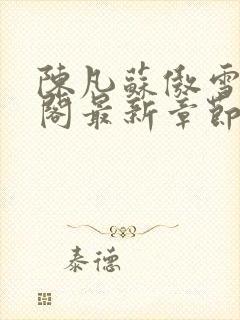 陳凡蘇傲雪
閣最新章節
泰德